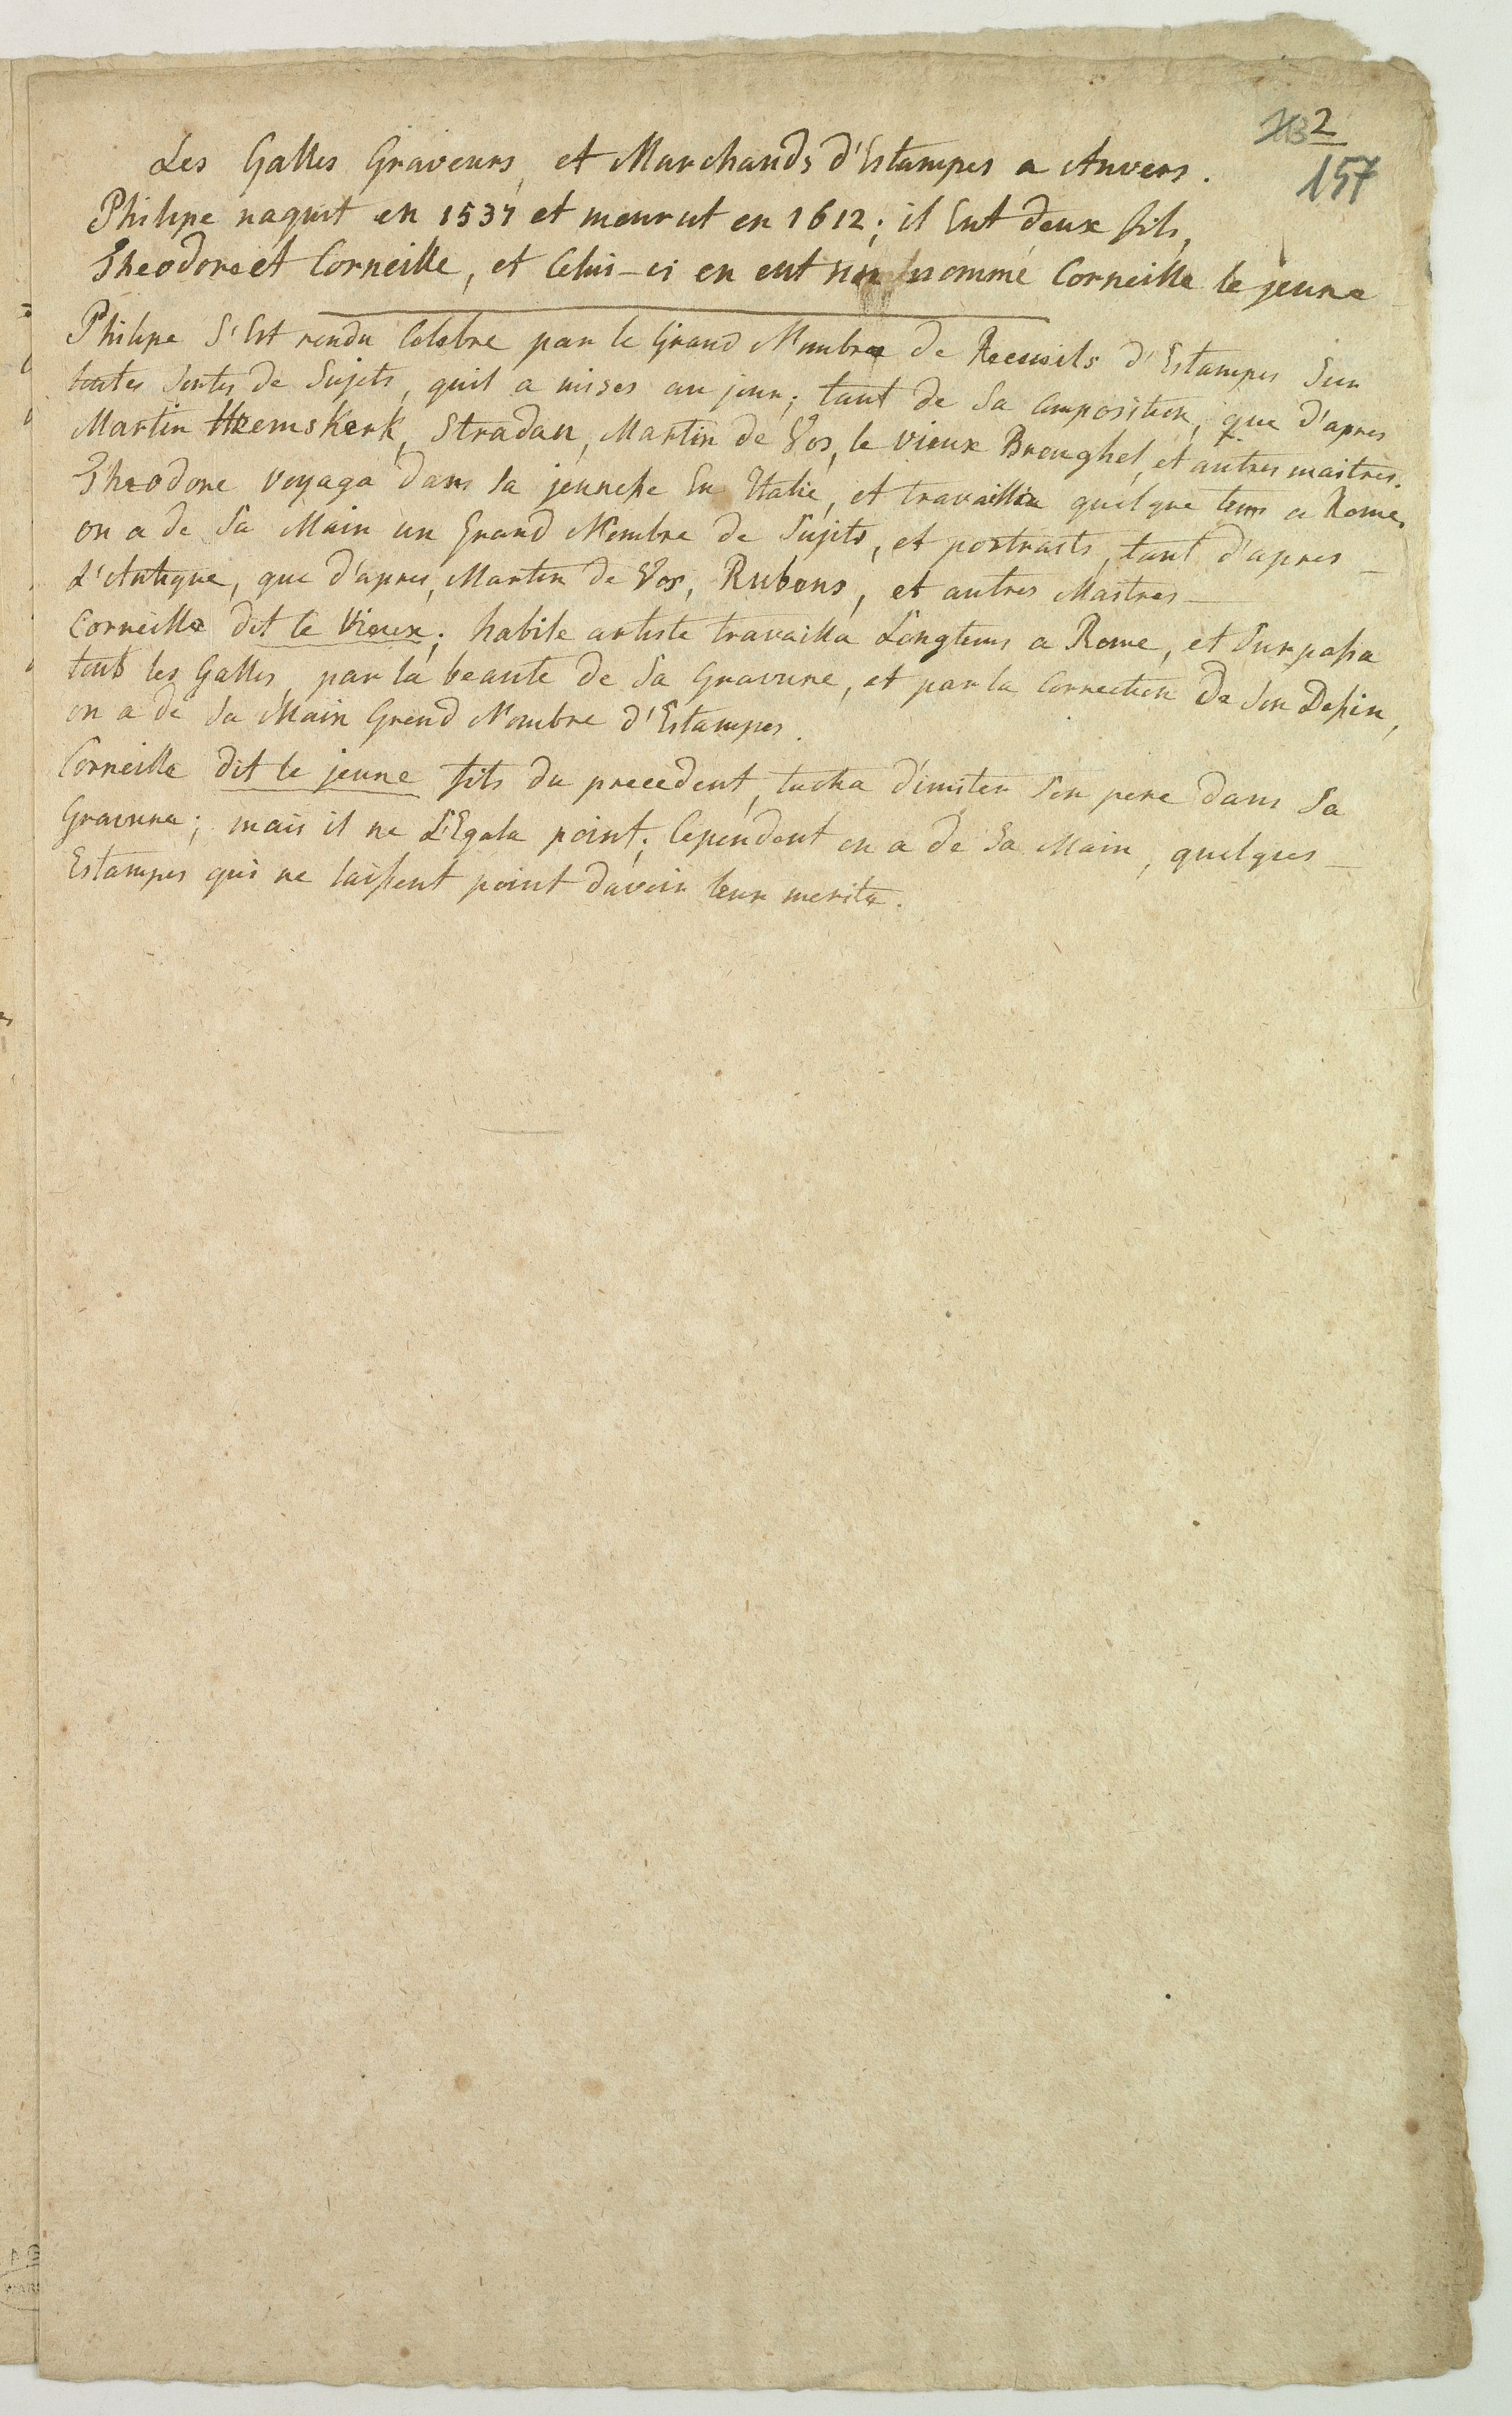 2
157
Les Galles Graveurs, et Marchands d'Estampes a Anvers.
Philipe naquit en 1537 et mourut en 1612; il Eut deux fils,
Theodore et Corneille, et Celui-ci en eut un nommé Corneille le jeune
Philipe S'Est rendu Celebre par le Grand Nombre de Recueils d'Estampes Sur
toutes Sortes de Sujets, quil a mises au jour; tant de Sa Composition, que d'apres
Martin Hemskerk, Stradan, Martin de Vos, le vieux Breughel, et autres maitres.
Theodore voyaga dans Sa jeunesse En Italie, et travailla quelque tems a Rome.
on a de Sa Main un Grand Nombre de Sujets, et portraits, tant d'apres
L'Antique, que d'apres, Martin de Vos, Rubens, et autres Maitres
Corneille dit le Vieux; habile artiste travailla Longtems a Rome, et Surpassa
tous les Galles, par la beaute de Sa Gravure, et par la Correction De Son Dessin,
on a de Sa Main Grend Nombre d'Estampes.
Corneille dit le jeune fils du precedent, tacha d'imiter Son pere dans Sa
Gravure; mais il ne L'Egala point; Cependent on a de Sa Main, quelques
Estampes qui ne laissent point davoir leur merite.